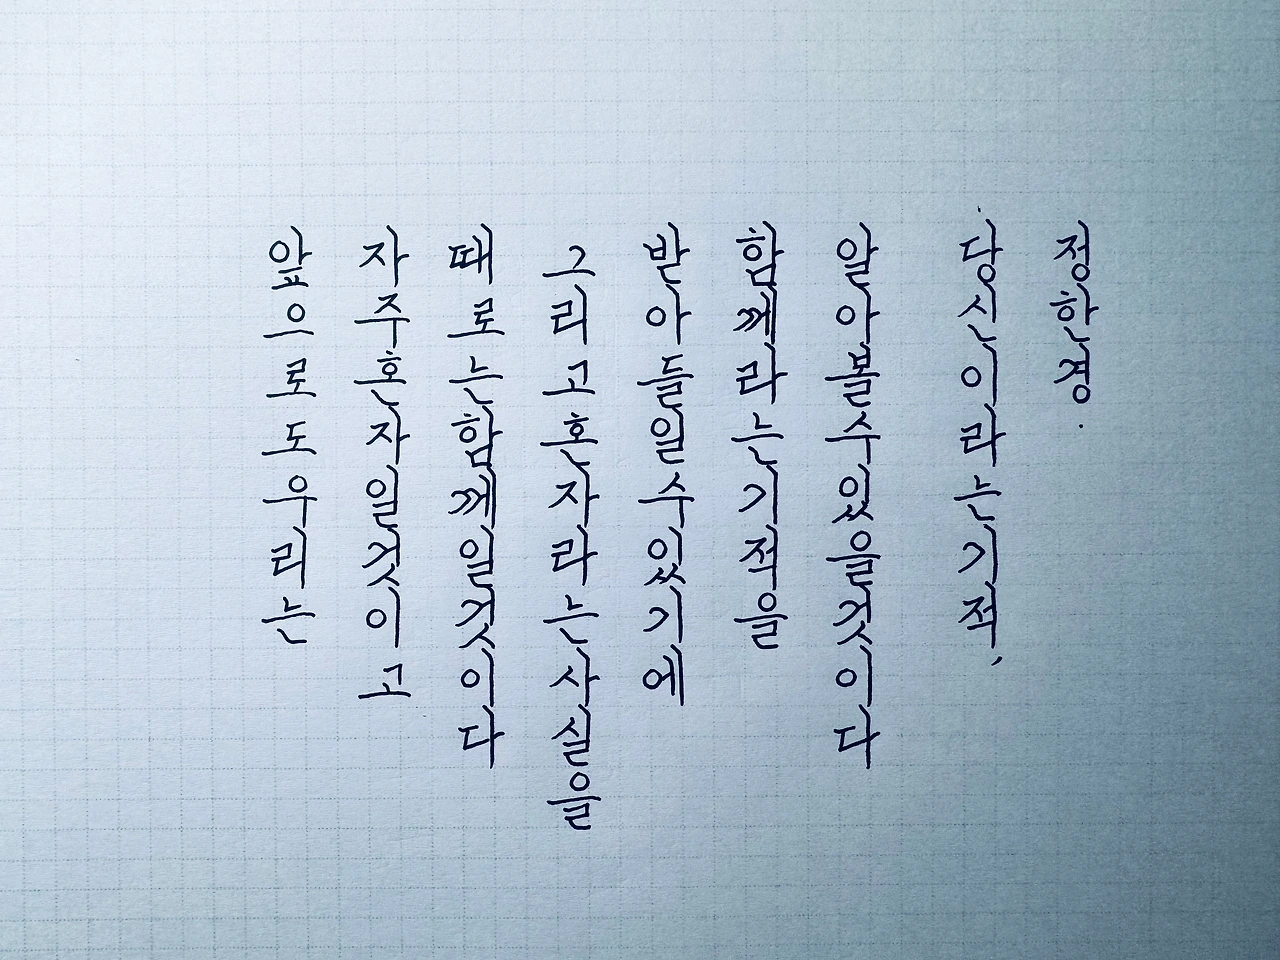 앞으로도우리는
자주혼자일것이고
때로는함께일것이다
그리고혼자라는사실을
받아들일수있기에
함께라는기적을
알아볼수있을것이다
당신이라는기적,
정한경.